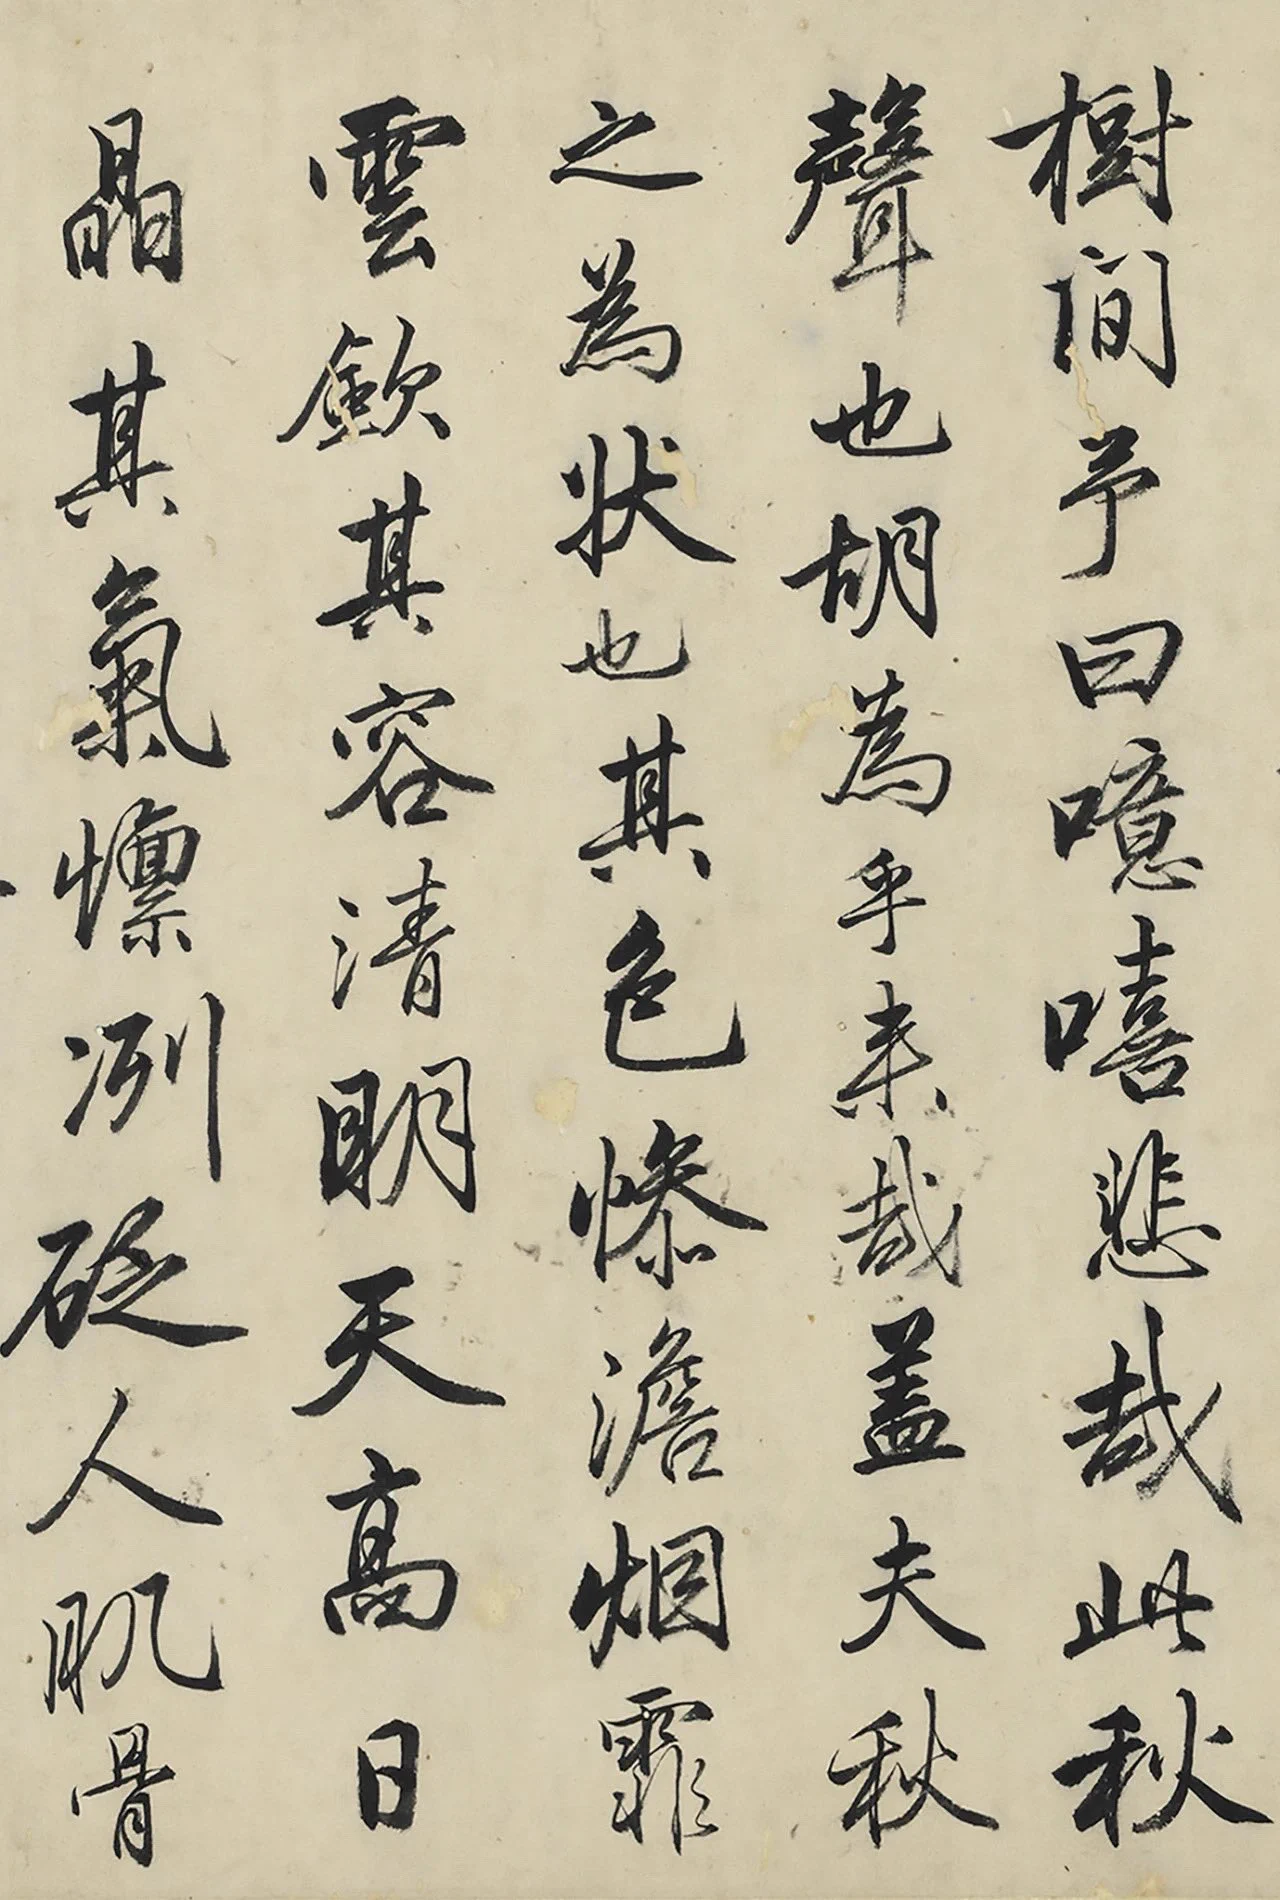 樹間予曰噫嘻悲哉此秋
聲也胡為乎来哉盖夫秋
之為状也其色惨澹烟霏
雲歛其容清明天高日
晶其氣慄冽砭人肌骨